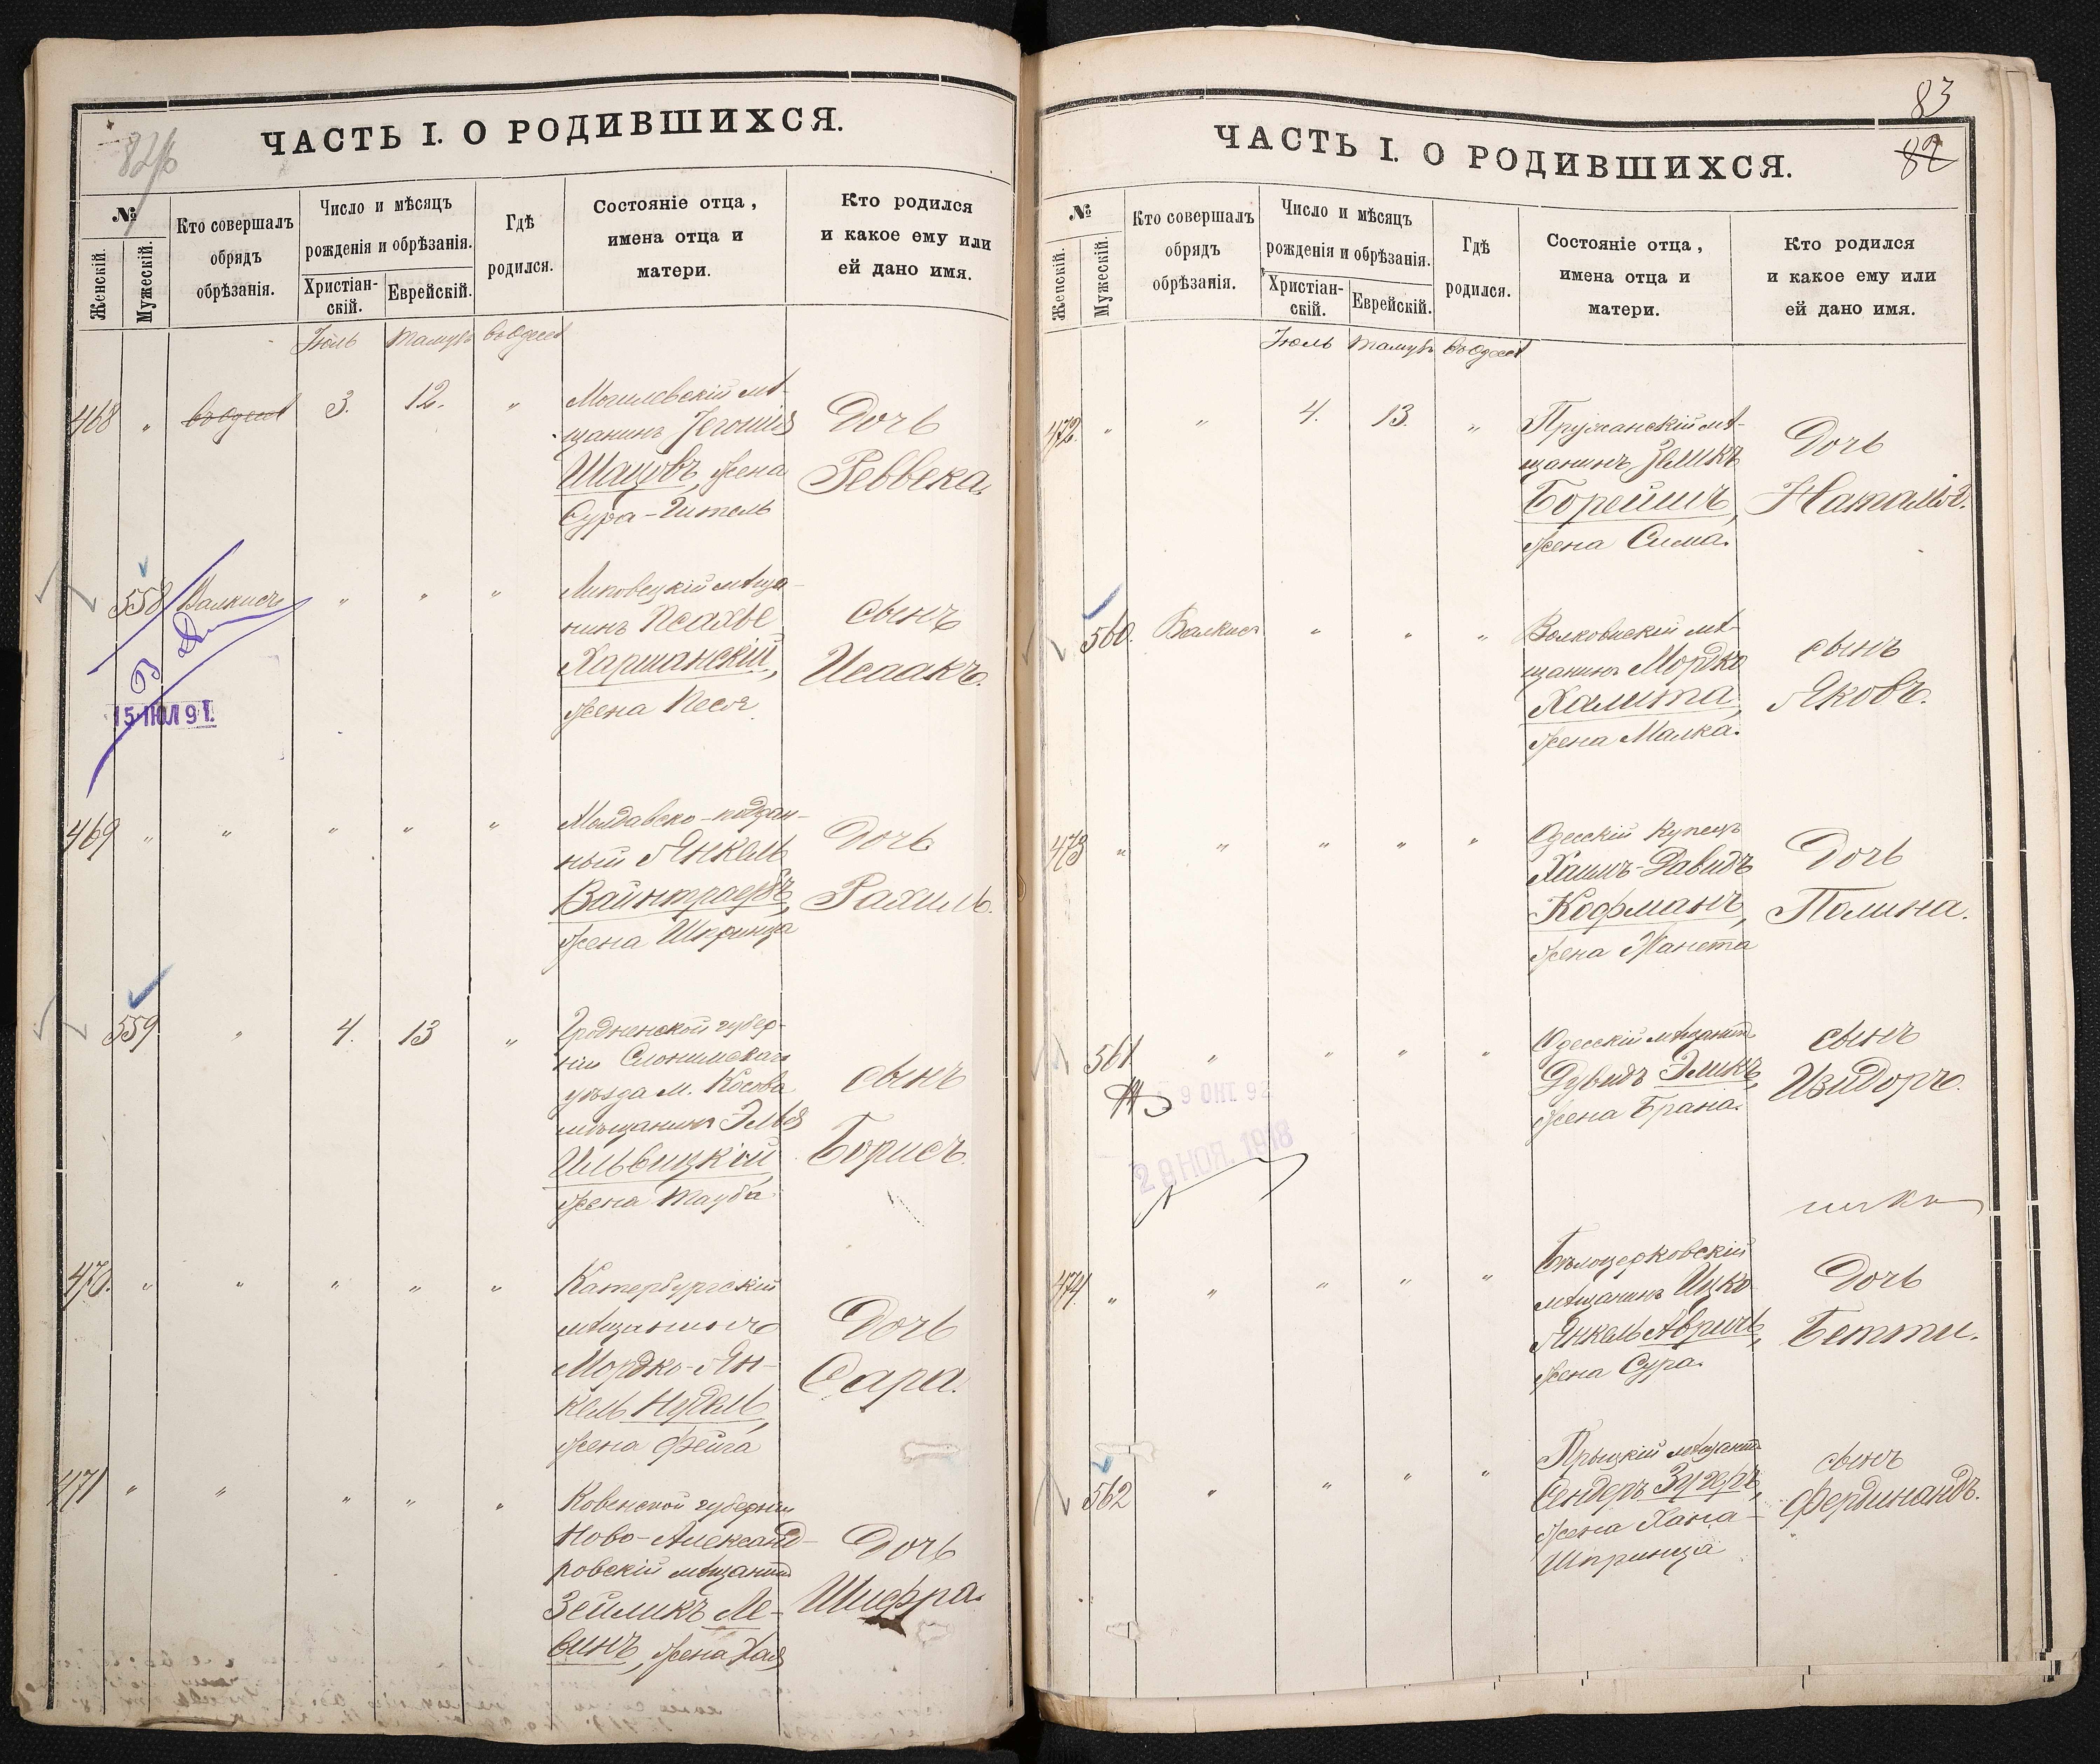 ЧАСТЬ I. О РОДИВШИХСЯ.
№
Женскій.
Мужескій.
Кто совершалъ
обрядъ
обрѣзанія.
Число и мѣсяцъ
рожденія и обрѣзанія.
Христіан-
скій.
Еврейскій.
Гдѣ
родился.
Состояніе отца,
имена отца и
матери.
Кто родился
и какое ему или
ей дано имя.
Іюль Тамузъ въ Одессѣ
468 " въ Одессѣ 3. 12. "
Могилевскій мѣ-
щанинъ Іегошія
Шацовъ, жена
Сура-Гитель
Дочь
Реввека.
558 Валкисъ " " "
Липовецкій мѣща-
нинъ Псахье
Харшанскій,
жена Песя
сынъ
Исаакъ.
15 ІЮЛ 91.
469 " " " " "
Молдавско-поддан-
ный Янкель
Вайнтраубъ,
жена Шпринца
Дочь
Рахиль.
559. " 4. 13 "
Гродненской губер-
ніи Слонимскаго
уѣзда м. Косова
мѣщанинъ Элья
Ильвицкій
жена Тауба
сынъ
Борисъ.
470. " " " " "
Катербургскій
мѣщанинъ
Мордко-Ян-
кель Нудель,
жена Фейга
Дочь
Сара.
471 " " " " "
Ковенской губерніи
Ново-Александ-
ровскій мѣщанинъ
Зейликъ Ле-
винъ, жена Хая
Дочь
Шифра.
83
82
ЧАСТЬ I. О РОДИВШИХСЯ.
№
Женскій.
Мужескій.
Кто совершалъ
обрядъ
обрѣзанія.
Число и мѣсяцъ
рожденія и обрѣзанія.
Христіан-
скій.
Еврейскій.
Гдѣ
родился.
Состояніе отца,
имена отца и
матери.
Кто родился
и какое ему или
ей дано имя.
Іюль Тамузъ въ Одессѣ
472. " " 4. 13. "
Пружанскій мѣ-
щанинъ Зеликъ
Борейшъ,
жена Сима.
Дочь
Наталія.
560. Валкисъ " " "
Волковискій мѣ-
щанинъ Мордко
Халита,
жена Малка.
сынъ
Яковъ.
473 " " " " "
Одесскій купецъ
Хаимъ-Давидъ
Кофманъ,
жена Жанета
Дочь
Полина.
561 " " " "
Одесскій мѣщанинъ
Дувидъ Эликъ,
жена Брана.
сынъ
Изидоръ.
9 ОКТ. 92
28 НОЯ. 1918
474. " " " " "
Бѣлоцерковскій
мѣщанинъ Ицко
Янкель Авричъ,
жена Сура.
Дочь
Бетти.
562 " " " "
мѣщанинъ
Сендеръ Зугеръ,
жена Хана-
Шпринца
сынъ
Фердинандъ.